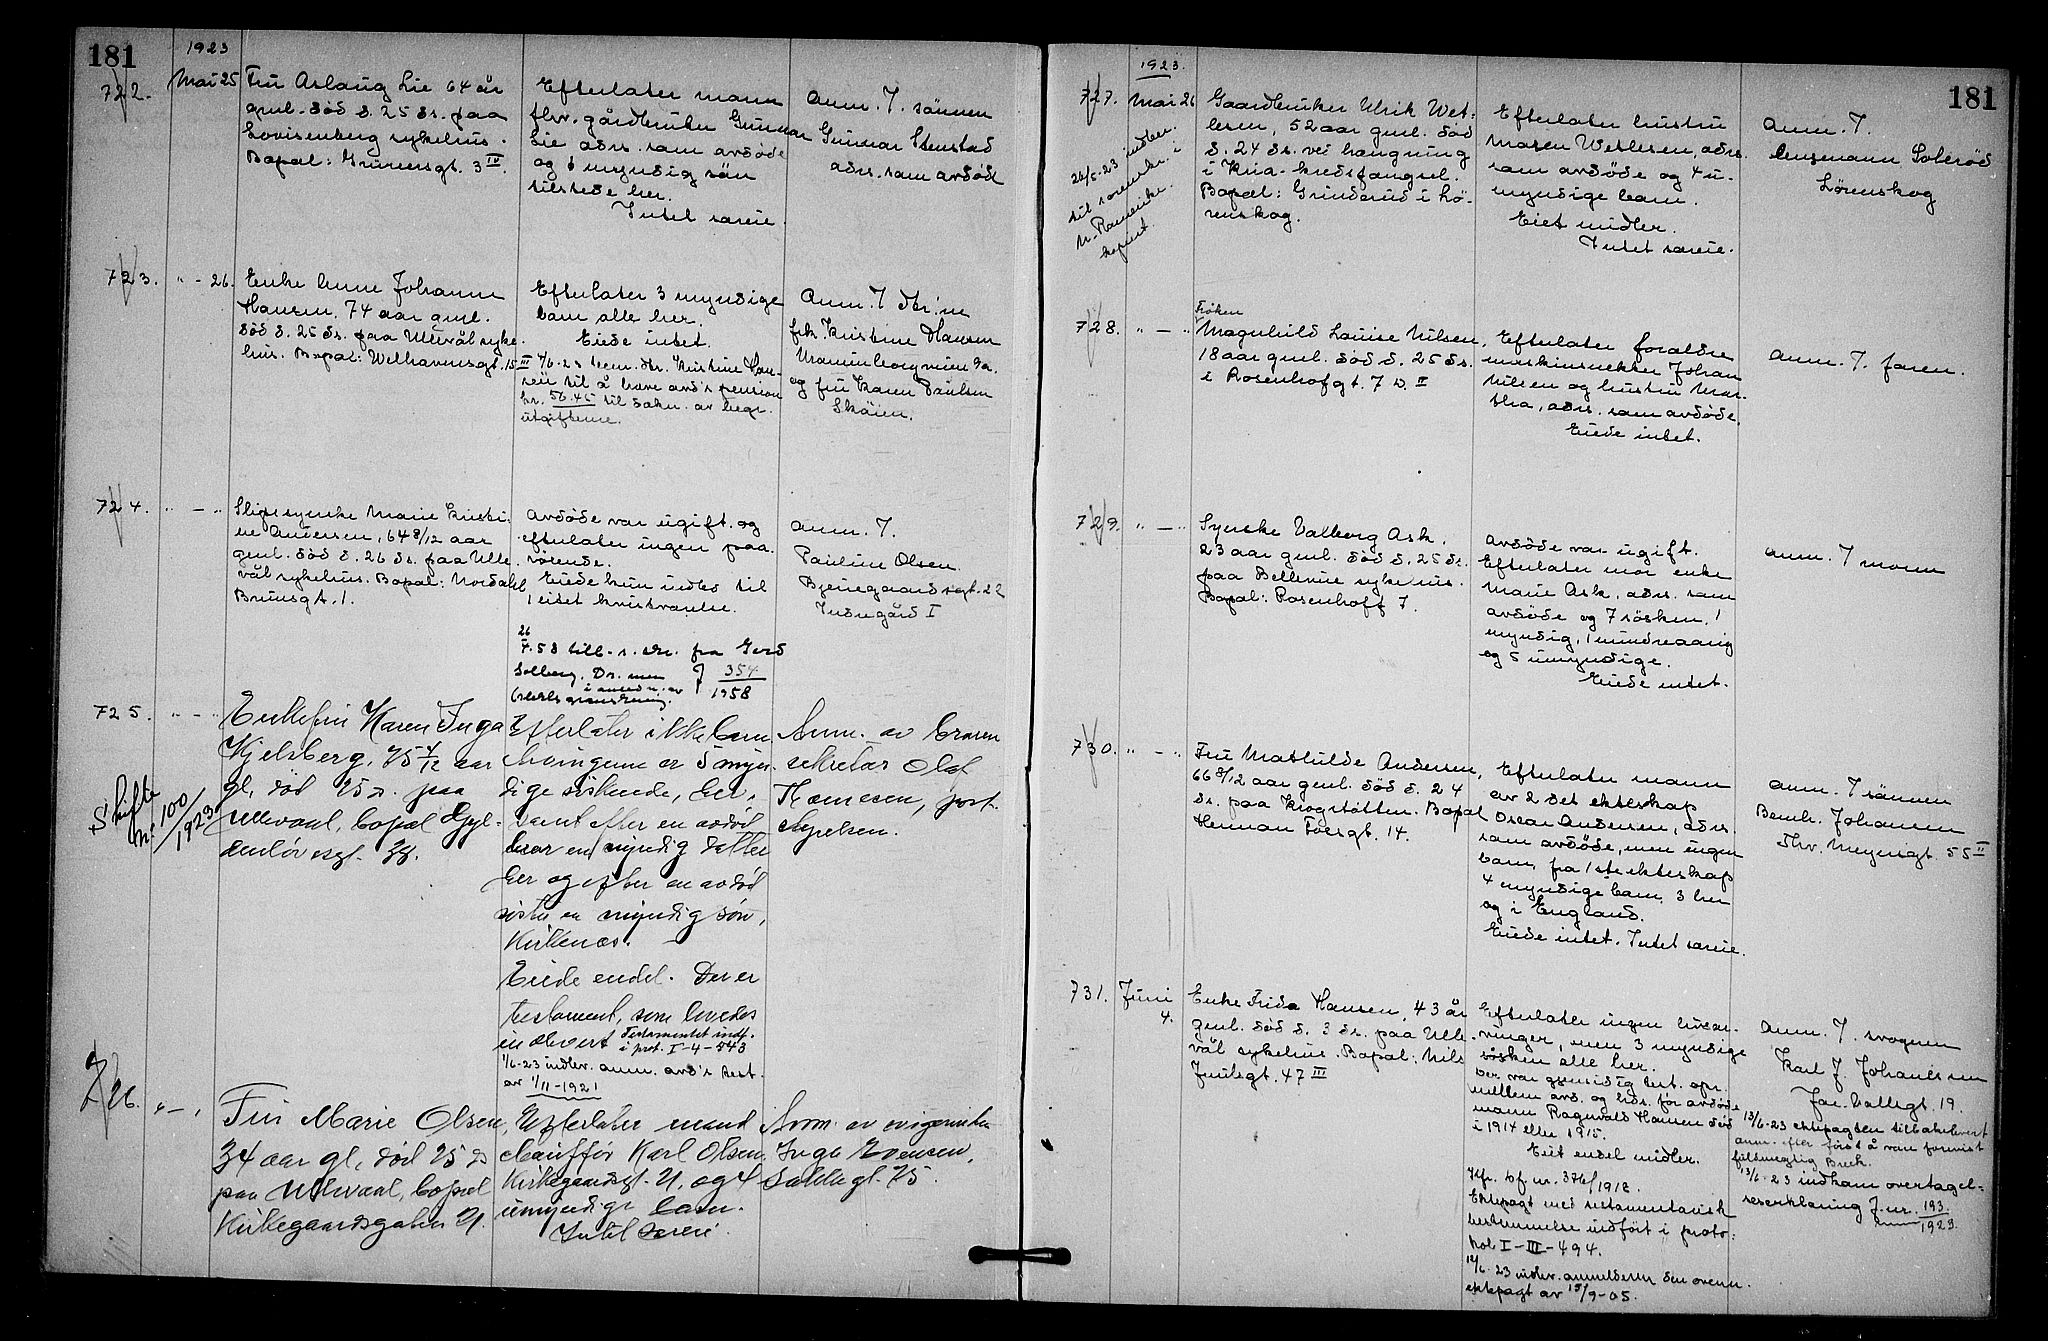 181
1923
722.
Mai 25
Fru Aslaug Lie 64 år
gml. död d. 25 ds. paa
Lovisenberg sykehus.
Bopæl: Grünersgt. 3 IV.
Efterlater mann
fhv. gårdbruker Gunnar
Lie adrs. som avdöde
og 1 myndig sön
tilstede her.
Intet særeie.
Anm. 7. sönnen
Gunnar Stenstad
adrs. som avdöde
723.
" - 26.
Enke Anne Johanne
Hansen, 74 aar gml.
död d. 25 ds. paa Ullevål syke-
hus. Bopæl: Welhavensgt. 15 III
Efterlater 3 myndige
barn alle her.
Eiede intet.
7/6-23 bem. dtr. Kristine Han-
sen til å heve avd's pension
kr. 56.45 til dækn. av begr.
utgifterne.
Anm. 7 dtr:ne
frk. Kristine Hansen
og fru Karen Paulsen
Sköien.
724.
" - "
Sykepleierske Marie Kristi-
ne Andersen, 64 8/12 aar
gml. död d. 26 ds. paa Ulle-
vål sykehus. Bopæl: Nordahl
Brunsgt. 1.
Avdöde var ugift og
efterlater ingen paa-
rörende.
Eiede kun indbo til
1 eidet kvistværelse.
26
4.58 till. s. skr. fra Gerd
Solberg, Dr.men J 354
i anledn. av 1958
Anm. 7.
Pauline Olsen.
Bjerregaardsgt. 22
Indregård I
725.
" - "
Skifte
Nr. 100/1923
Enkefru Karen Inga
Kjelsberg, 75 4/12 aar
gl, död 25 ds. paa
Ullevaal, bopæl Gyl-
denlövesgt. 38.
Efterlater ikke barn
Arvingerne er 5 myn-
dige söskende, her,
samt efter en avdöd
bror en myndig datter
her og efter en avdöd
söster en myndig sön,
Kirkenæs.
Eiede endel. Der er
testament, som lovedes
indlevert Testamentet indf.
i prot. I-4-543
1/6-23 indlev. anm. avd's test.
av 1/11-1921
Anm. av
sekretær Olaf
726.
" - "
Fru Marie Olsen,
34 aar gl, död 25 ds
paa Ullevaal, bopæl
Kirkegaardsgaten 21.
Efterlater mand
chaufför Karl Olsen,
Kirkegaardsgt. 21. og 4
umyndige barn.
Intet særeie.
Anm. av svigerinden
Inga Evensen,
181
1923.
727.
Mai 26
26/5-23 indber.
til sorenskr. i
N. Romerike.
Gaardbruker Ulrik Wet-
lesen, 52 aar gml. död
d. 24 ds. ved hængning
i Kria kredsfængsel.
Bopæl: Grinderud i Lö-
renskog.
Efterlater hustru
Maren Wetlesen, adrs.
som avdöde og 4 u-
myndige barn.
Eiet midler.
Intet særeie.
Anm. 7.
lensmann Soleröd
Lörenskog
728.
" - "
Fröken
Magnhild Louise Nilsen,
18 aar gml. död d. 25 ds.
i Rosenhofgt. 7 D. II
Efterlater forældre
maskinsnekker Johan
Nilsen og hustru Mar-
tha, adrs. som avdöde.
Eiede intet.
Anm. 7. faren.
729.
" - "
Syerske Valborg Ask.
23 aar gml. död d. 25 ds.
paa Bellevue sykehus.
Bopæl: Rosenhoff 7.
Avdöde var ugift.
Efterlater mor enke
Marie Ask, adrs. som
avdöde og 7 sösken, 1
myndig, 1 mindreaarig
og 5 umyndige.
Eiede intet.
Anm. 7 moren
730.
" - "
Fru Mathilde Andersen,
66 8/12 aar gml. död d. 24
ds. paa Krogstötten. Bopæl
Herman Fossgt. 14.
Efterlater mann
av 2det ekteskap
Oscar Andersen, adrs.
som avdöde, men ingen
barn, fra 1ste ekteskap
4 myndige barn, 3 her
og i England.
Eiede intet. Intet særeie.
Anm. 7 sönnen
Bernh. Johansen
Thv. Meyersgt. 55 II
731.
Juni
4.
Enke Frida Hansen, 43 år
gml. död d. 3 ds. paa Ulle-
vål sykehus. Bopæl: Nils
Juulsgt. 47 III
Efterlater ingen livsar-
vinger, men 3 myndige
sösken alle her.
Der var gjensidig test. opr.
mellem avd. og hds. för avdöde
mann Ragnvald Hansen död
i 1914 eller 1915.
Eiet endel midler.
Jfr. bf. nr. 376/1918.
Ektepagt med testamentarisk
bestemmelse indfört i proto-
kol I-III-494.
12/6-23 indlev. anmelderen den ovenn.
ektepagt av 15/9-05.
Anm. 7. svogeren
Karl J. Johansen
Jac. Hallsgt. 19.
13/6-23 ektepagten tilbakelevert
anm. efter först å være forevist
fuldmegtig Beck.
13/6-23 indkom overtagel-
seserklæring J.nr. 193
1923.